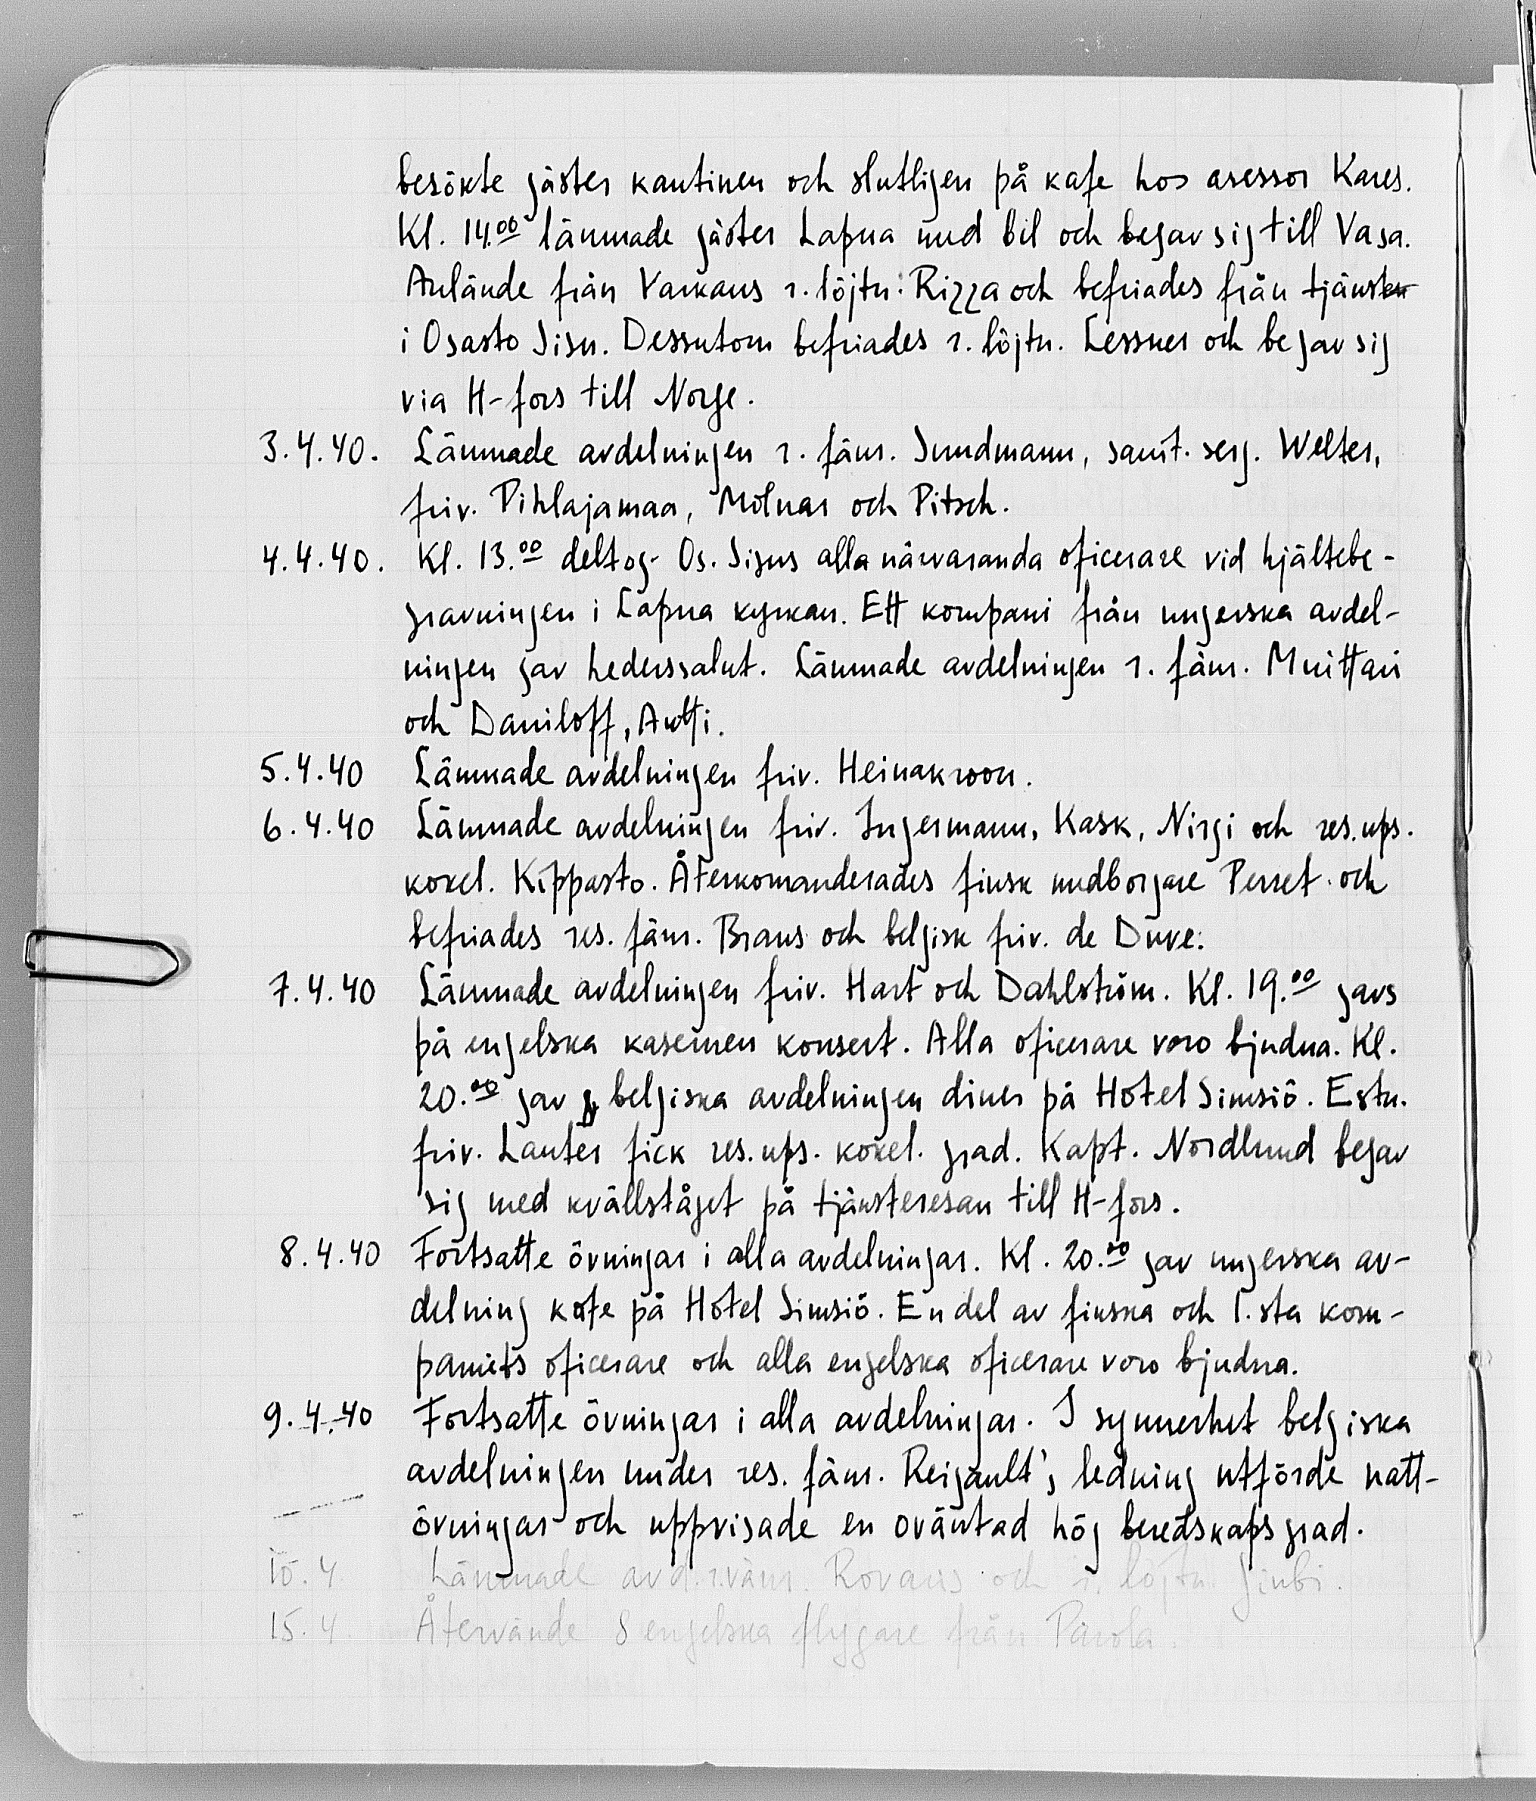 besökte gäster kantinen och slutligen på kafe hos asessor Kares.
Kl. 14.00 lämnade gäster Lapua med bil och begav sig till Vasa.
Anlände från Varkaus r. löjtn. Rizza och befriades från tjänsten
i Osasto Sisu. Dessutom befriades r. löjtn. Lessner och begav sig
via H-fors till Norge.
3.4.40. Lämnade avdelningen r. fänr. Sundmann, samt. serg. Welter,
friv. Pihlajamaa, Molnar och Pitsch.
4.4.40. Kl. 13.00 deltog Os. Sisus alla närvaranda oficerare vid hjältebe-
gravningen i Lapua kyrkan. Ett kompani från ungerska avdel-
ningen gav hederssalut. Lämnade avdelningen r. fänr. Muittari
och Daniloff, Antti.
5.4.40 Lämnade avdelningen friv. Heinakroon.
6.4.40 Lämnade avdelningen friv. Ingermann, Kask, Nirgi och res.ups.
kokel. Kippasto. Återkomanderades finsk medborgare Perret och
befriades res. fänr. Braus och belgisk friv. de Duve.
7.4.40 Lämnade avdelningen friv. Hart och Dahlström. Kl. 19.00 gavs
på engelska kasernen konsert. Alla oficerare voro bjudna. Kl.
20.00 gav belgiska avdelningen diner på Hotel Simsiö. Estn.
friv. Lauter fick res.ups. kokel. grad. Kapt. Nordlund begav
sig med kvällståget på tjänsteresan till H-fors.
8.4.40 Fortsatte övningar i alla avdelningar. Kl. 20.00 gav ungerska av-
delning kafe på Hotel Simsiö. En del av finska och 1.sta kom-
paniets oficerare och alla engelska oficerare voro bjudna.
9.4.40 Fortsatte övningar i alla avdelningar. I synnerhet belgiska
avdelningen under res. fänr. Reigault's ledning utförde natt-
övningar och uppvisade en oväntad hög beredskapsgrad.
10.4. Lämnade avd. r. Rovaus och r. löjtn.
15.4. Återvände 8 engelska flygare från Parola.